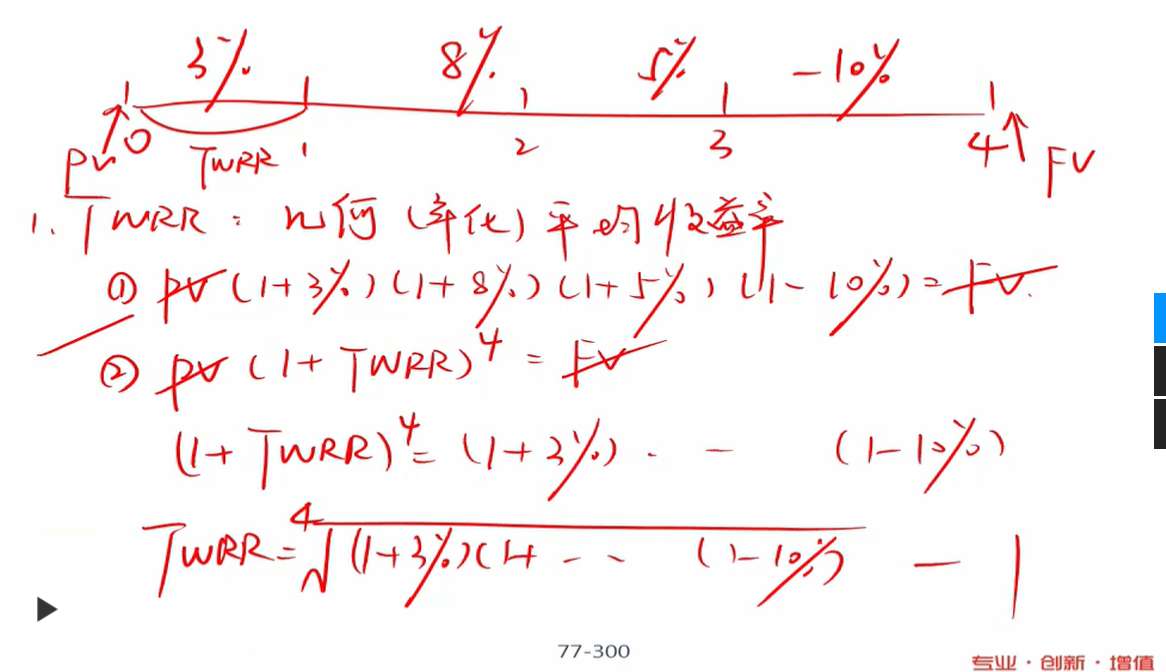 3% 8% 5% -10%
0 1 2 3 4
PV TWRR FV
1. TWRR: 几何(年化)平均收益率
① PV(1+3%)(1+8%)(1+5%)(1-10%)=FV.
② PV(1+TWRR)^4 = FV
(1+TWRR)^4 = (1+3%) · - (1-10%)
TWRR = ⁴√(1+3%)(1+ - - (1-10%) - 1
77-300
专业·创新·增值